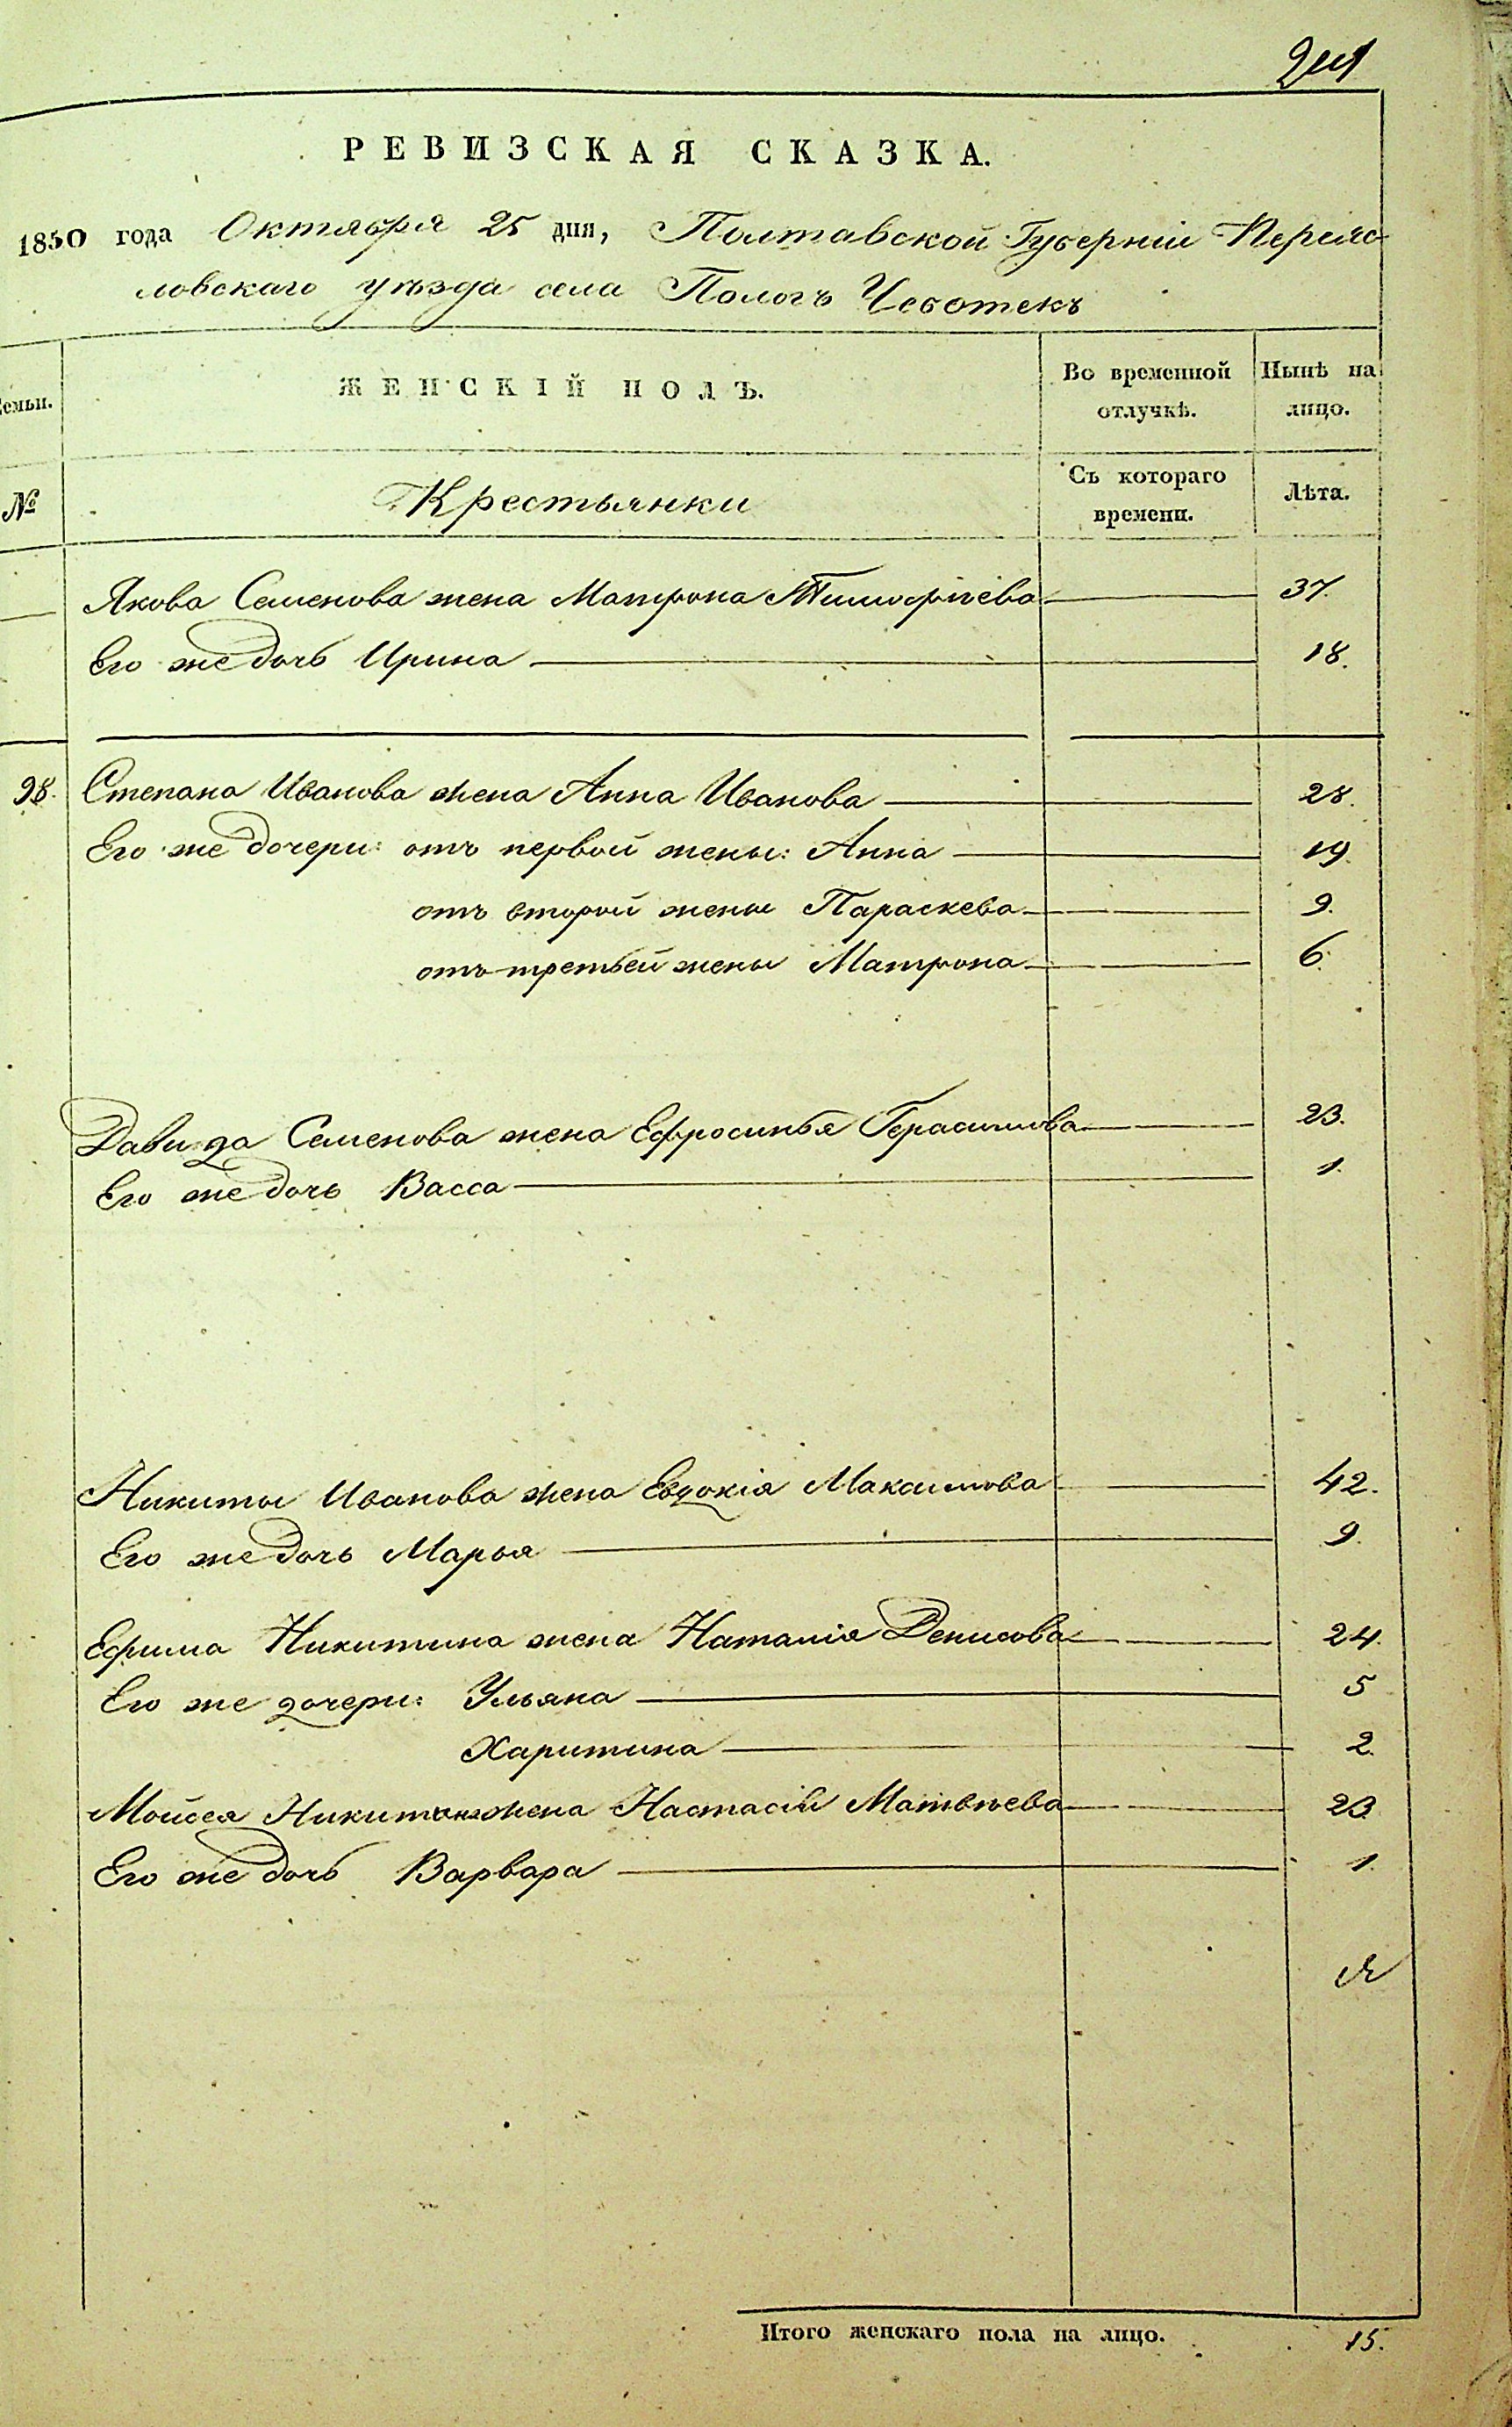 241
РЕВИЗСКАЯ СКАЗКА.
1850 года Октября 25 дня, Полтавской Губерніи Переяс-
ловскаго уѣзда села Пологъ Чеботекъ
Семьи.
ЖЕНСКІЙ ПОЛЪ.
Во временной отлучкѣ.
Нынѣ на лицо.
№
Крестьянки
Съ котораго времени.
Лѣта.
Якова Семенова жена Матрона Тимофѣева 37.
Его же дочь Ирина 18.
98. Степана Иванова жена Анна Иванова 28.
Его же дочери: отъ первой жены: Анна 19.
отъ второй жены Параскева 9.
отъ третьей жены Матрона 6.
Давида Семенова жена Ефросинья Герасимова 23.
Его же дочь Васса 1.
Никиты Иванова жена Евдокія Максимова 42.
Его же дочь Марья 9.
Ефима Никитина жена Наталія Денисова 24.
Его же дочери: Ульяна 5
Харитина 2.
Мойсея Никитина жена Настасія Матвѣева 23
Его же дочь Варвара 1.
Итого женскаго пола на лицо. 15.